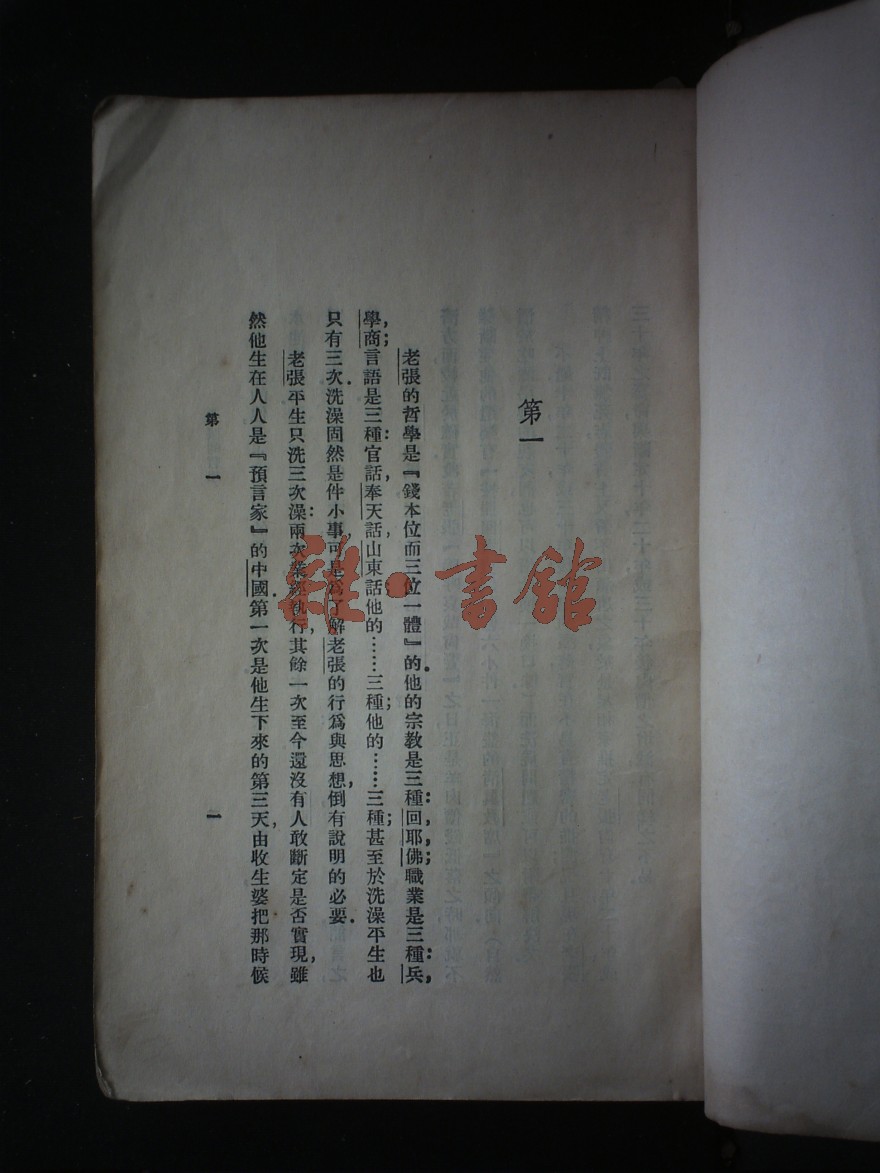 第一
老張的哲學是『錢本位而三位一體』的.他的宗教是三種:回,耶,佛;職業是三種:兵,
學,商;言語是三種:官話,奉天話,山東話;他的……三種;他的……三種;甚至於洗澡平生也
只有三次.洗澡固然是件小事,可是爲了解老張的行爲與思想,倒有說明的必要.
老張平生只洗三次澡:兩次業經執行,其餘一次至今還沒有人敢斷定是否實現,雖
然他生在人人是『預言家』的中國.第一次是他生下來的第三天,由收生婆把那時候
第一
一
雜·書館